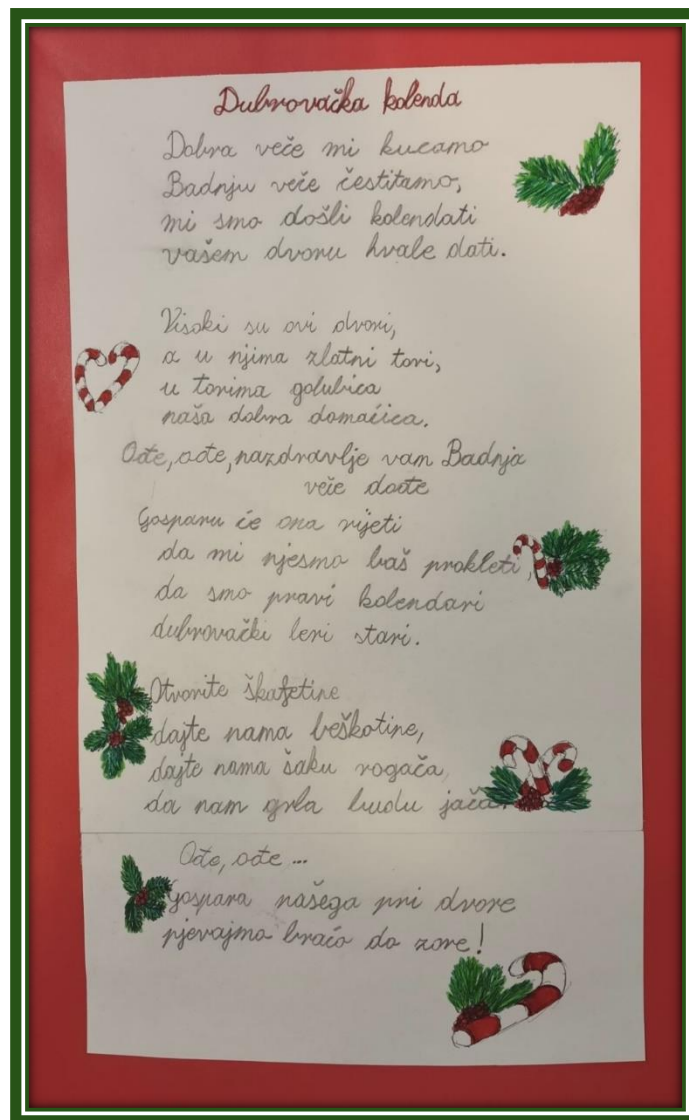 Dubrovačka kolenda
Dobra veče mi kucamo
Badnju veče čestitamo,
mi smo došli kolendati
vašem dvoru hvale dati.
Visoki su ovi dvori,
a u njima zlatni tori,
u torima golubica
naša dobra domaćica.
Ođe, ođe, nazdravlje vam Badnja
veče dođe
Gosparu će ona rijeti
da mi njesmo baš prokleti,
da smo pravi kolendari
dubrovački leri stari.
Otvorite škafetine
dajte nama beškotine,
dajte nama šaku rogača,
da nam grla budu jača.
Ođe, ođe ...
Gospara našega pri dvore
pjevajmo braćo do zore!